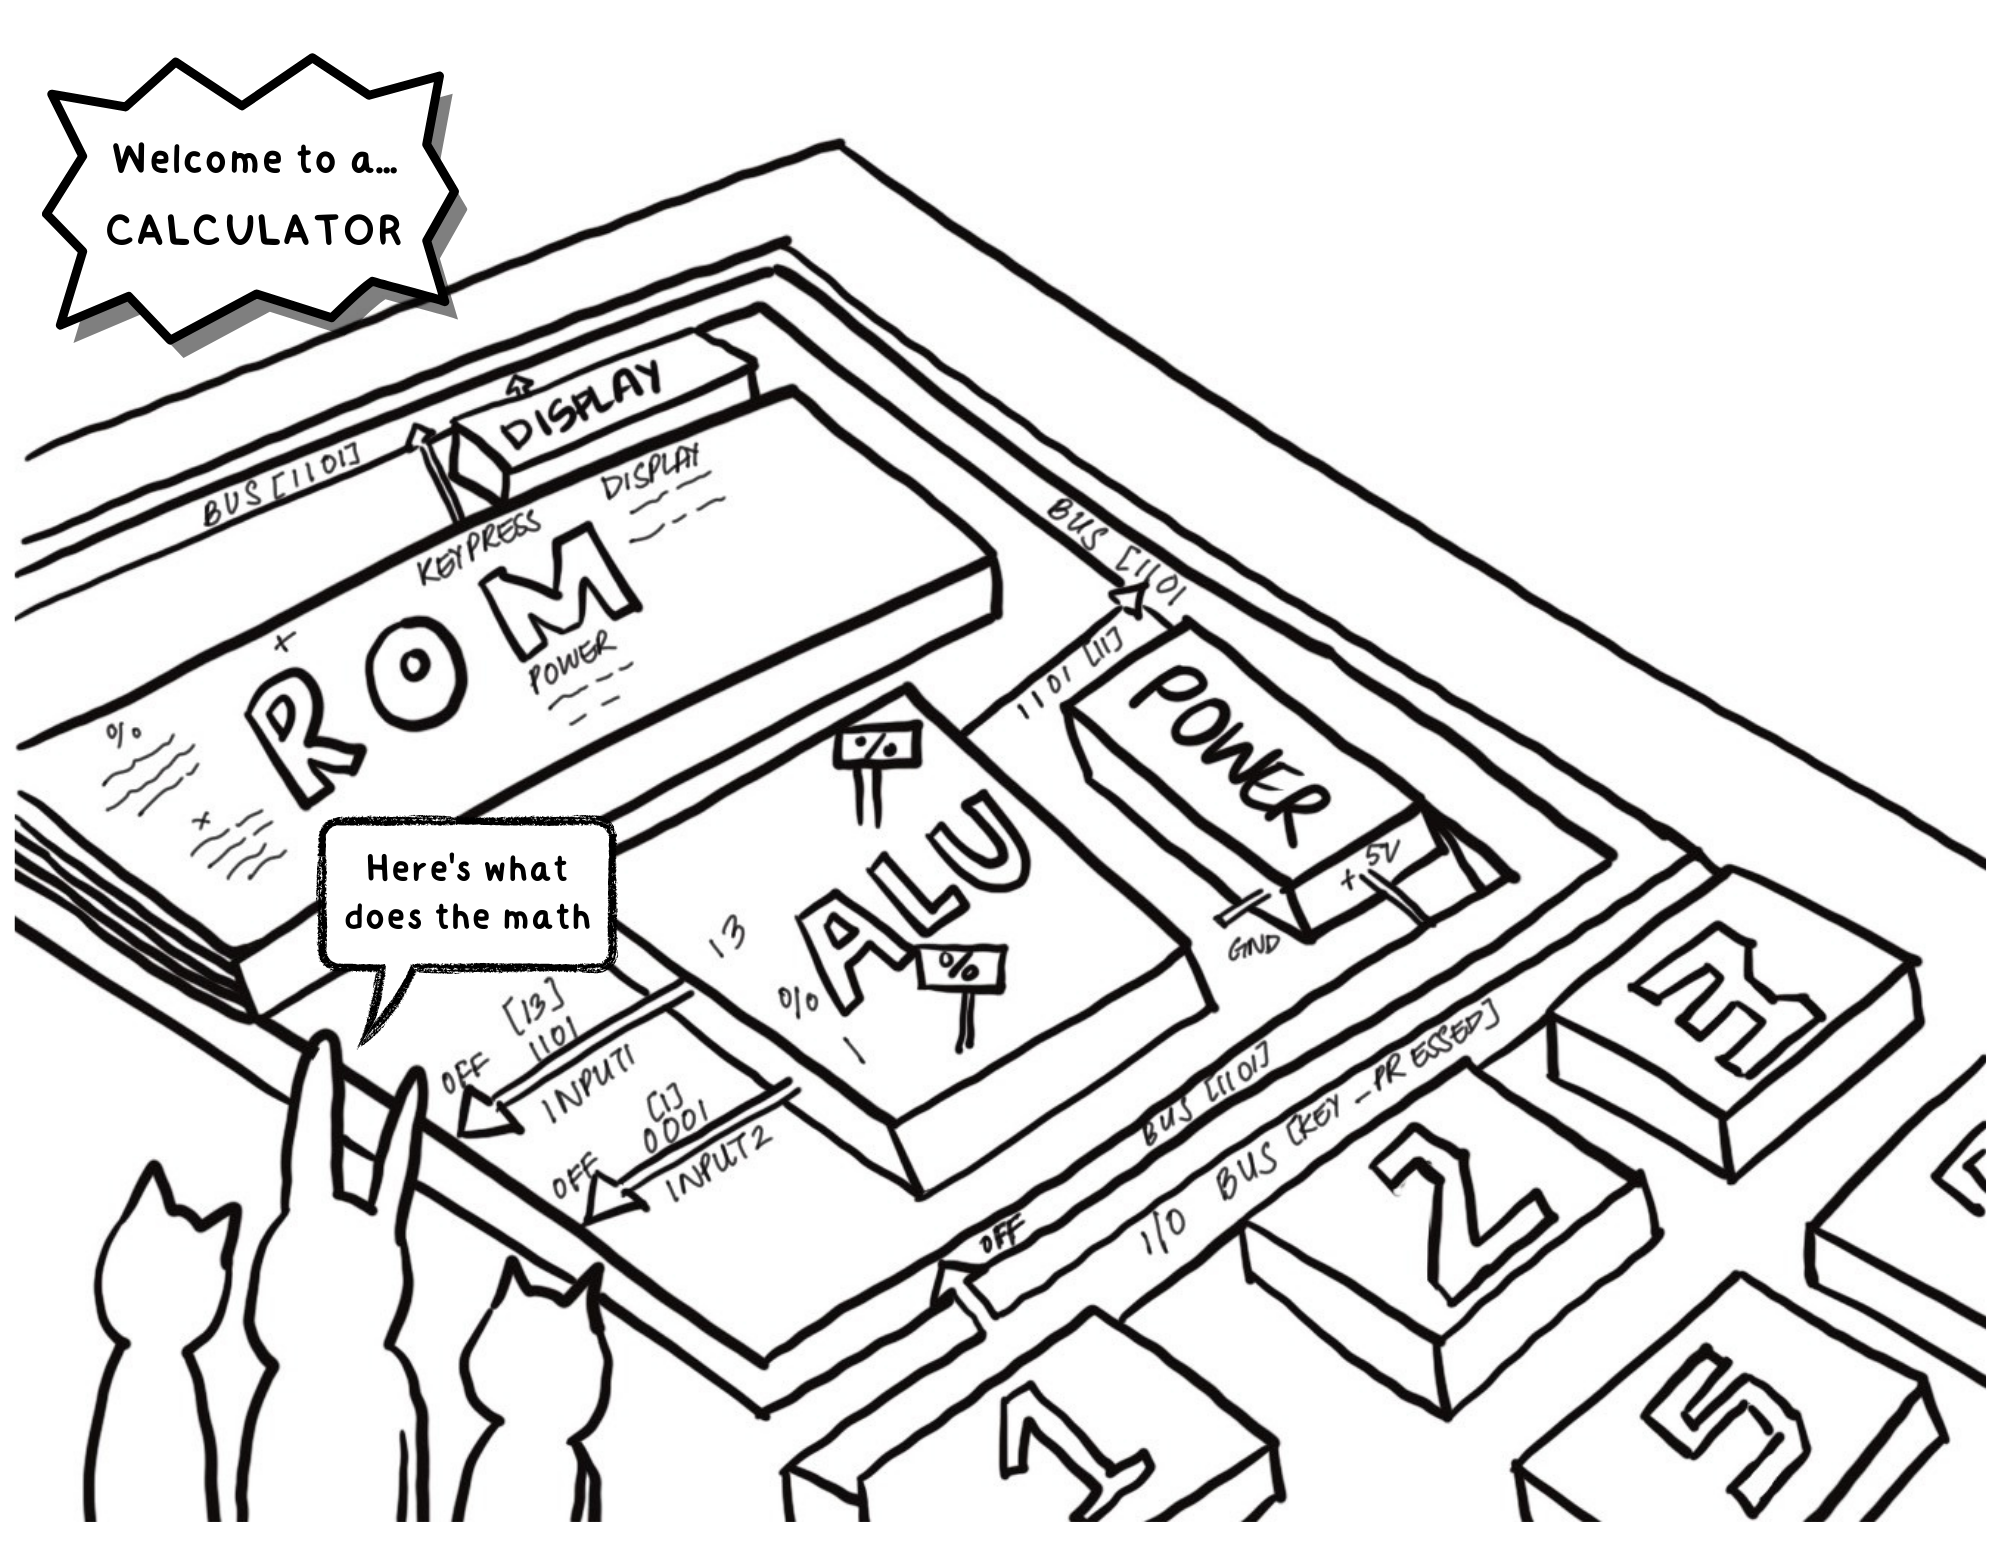 Welcome to a...
CALCULATOR
DISPLAY
BUS [1101]
DISPLAY
KEYPRESS
ROM
+
POWER
%
+
BUS [1101
1101 [11]
POWER
+ 5V
GND
%
ALU
%
13
%
1
Here's what
does the math
[13]
1101
OFF
INPUT1
[1]
0001
OFF
INPUT2
BUS [1101]
I/O BUS [KEY_PRESSED]
OFF
3
2
1
5